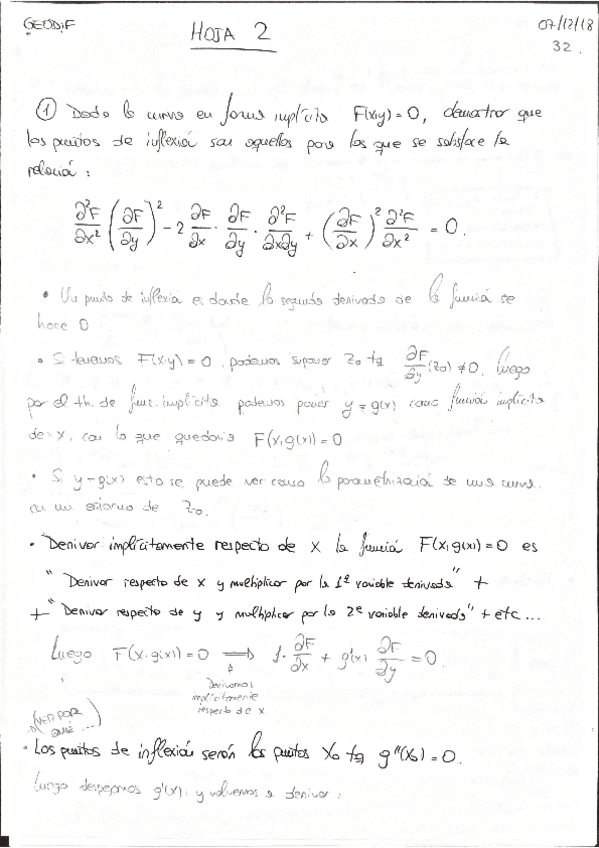 GEODIF
HOJA 2
07/12/18
32.
① Dada la curva en forma implícita F(x,y)=0, demostrar que
los puntos de inflexión son aquellos para los que se satisface la
relación:
∂²F/∂x² (∂F/∂y)² - 2 ∂F/∂x · ∂F/∂y · ∂²F/∂x∂y + (∂F/∂x)² ∂²F/∂x² = 0.
• Un punto de inflexión es donde la segunda derivada de la función se
hace 0
• Si tenemos F(x,y)=0, podemos suponer z₀ tq ∂F/∂y (z₀) ≠ 0. Luego
por el th. de func. implícita podemos poner y = g(x) como función implícita
de x, con lo que quedaría F(x,g(x))=0
• Si y=g(x) esto se puede ver como la parametrización de una curva
en un entorno de z₀.
• Derivar implícitamente respecto de x la función F(x,g(x))=0 es
"Derivar respecto de x y multiplicar por la 1ª variable derivada" +
+ "Derivar respecto de y y multiplicar por la 2ª variable derivada" + etc...
Luego F(x,g(x))=0 ⟹ 1·∂F/∂x + g'(x) ∂F/∂y = 0.
derivamos
implícitamente
respecto de x
(VER POR
QUÉ ...)
• Los puntos de inflexión serán los puntos x₀ tq g''(x₀)=0.
Luego despejamos g'(x) y volvemos a derivar: